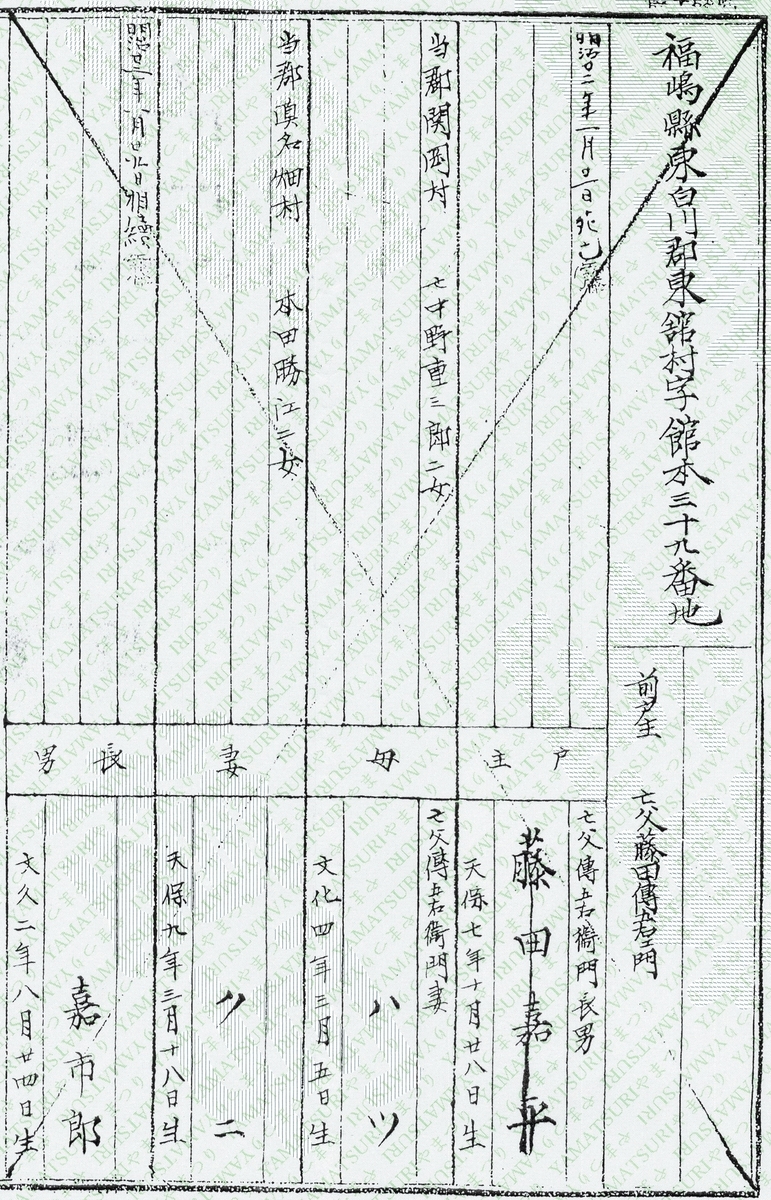 福嶋縣東白川郡東舘村字舘本三十九番地
前戸主 亡父藤田傳五右エ門
明治廿二年一月廿二日死亡
戸主
亡父傳五右衛門長男
藤田嘉平
天保七年十月廿八日生
当郡関岡村 亡中野重三郎二女
母
亡父傳五右衛門妻
ハツ
文化四年三月五日生
当郡真名畑村 本田勝江二女
妻
クニ
天保九年三月十八日生
相續
長男
嘉市郎
文久二年八月廿四日生
YAMATSURI やまつり